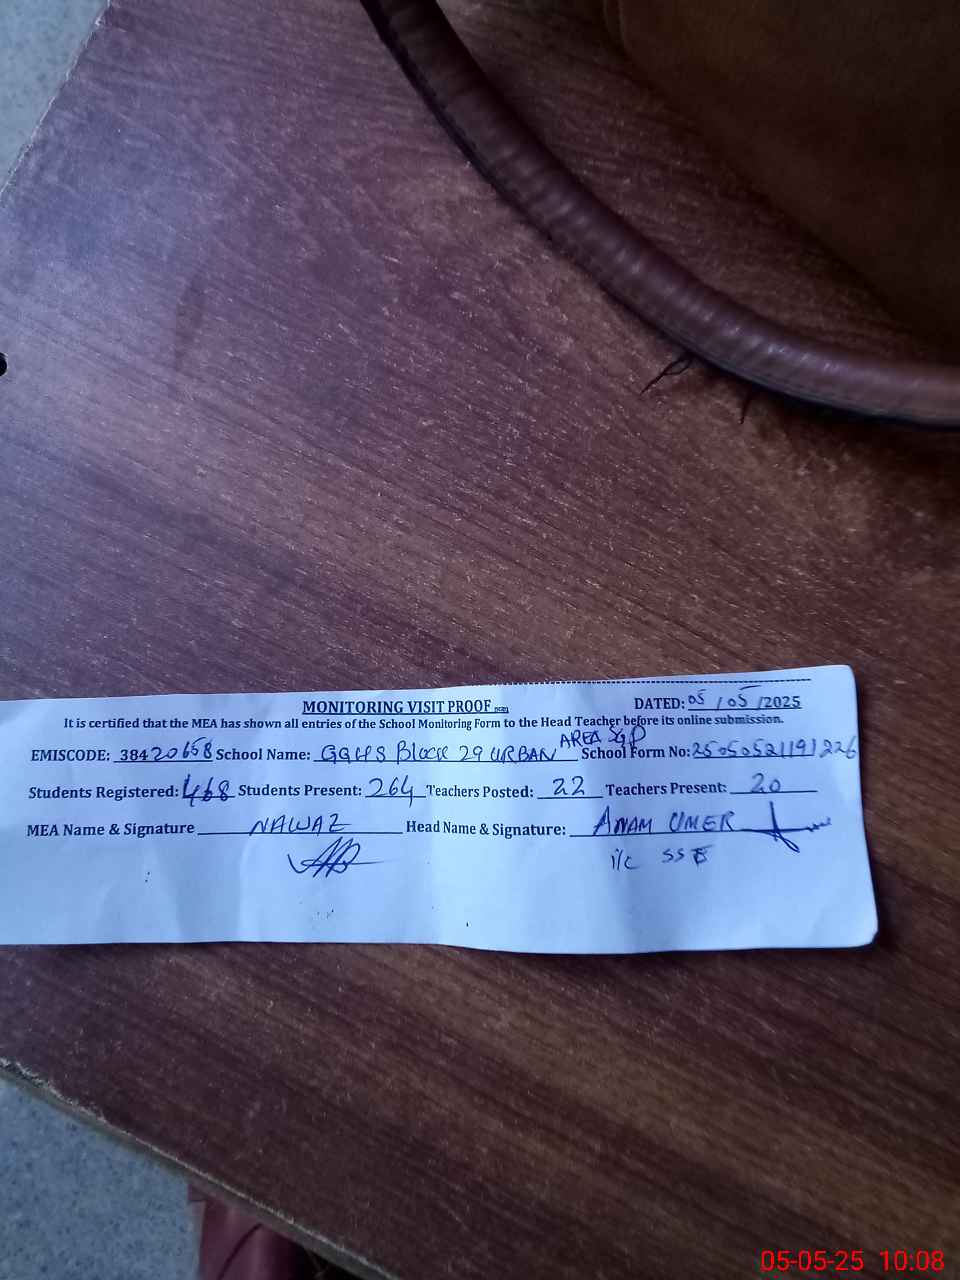 MONITORING VISIT PROOF
DATED: 05 / 05 /2025
It is certified that the MEA has shown all entries of the School Monitoring Form to the Head Teacher before its online submission.
EMISCODE: 38420658 School Name: GGHS Block 29 URBAN AREA SGD School Form No: 25050521191226
Students Registered: 468 Students Present: 264 Teachers Posted: 22 Teachers Present: 20
MEA Name & Signature NAWAZ Head Name & Signature: ANAM UMER
i/c SSE
05-05-25 10:08